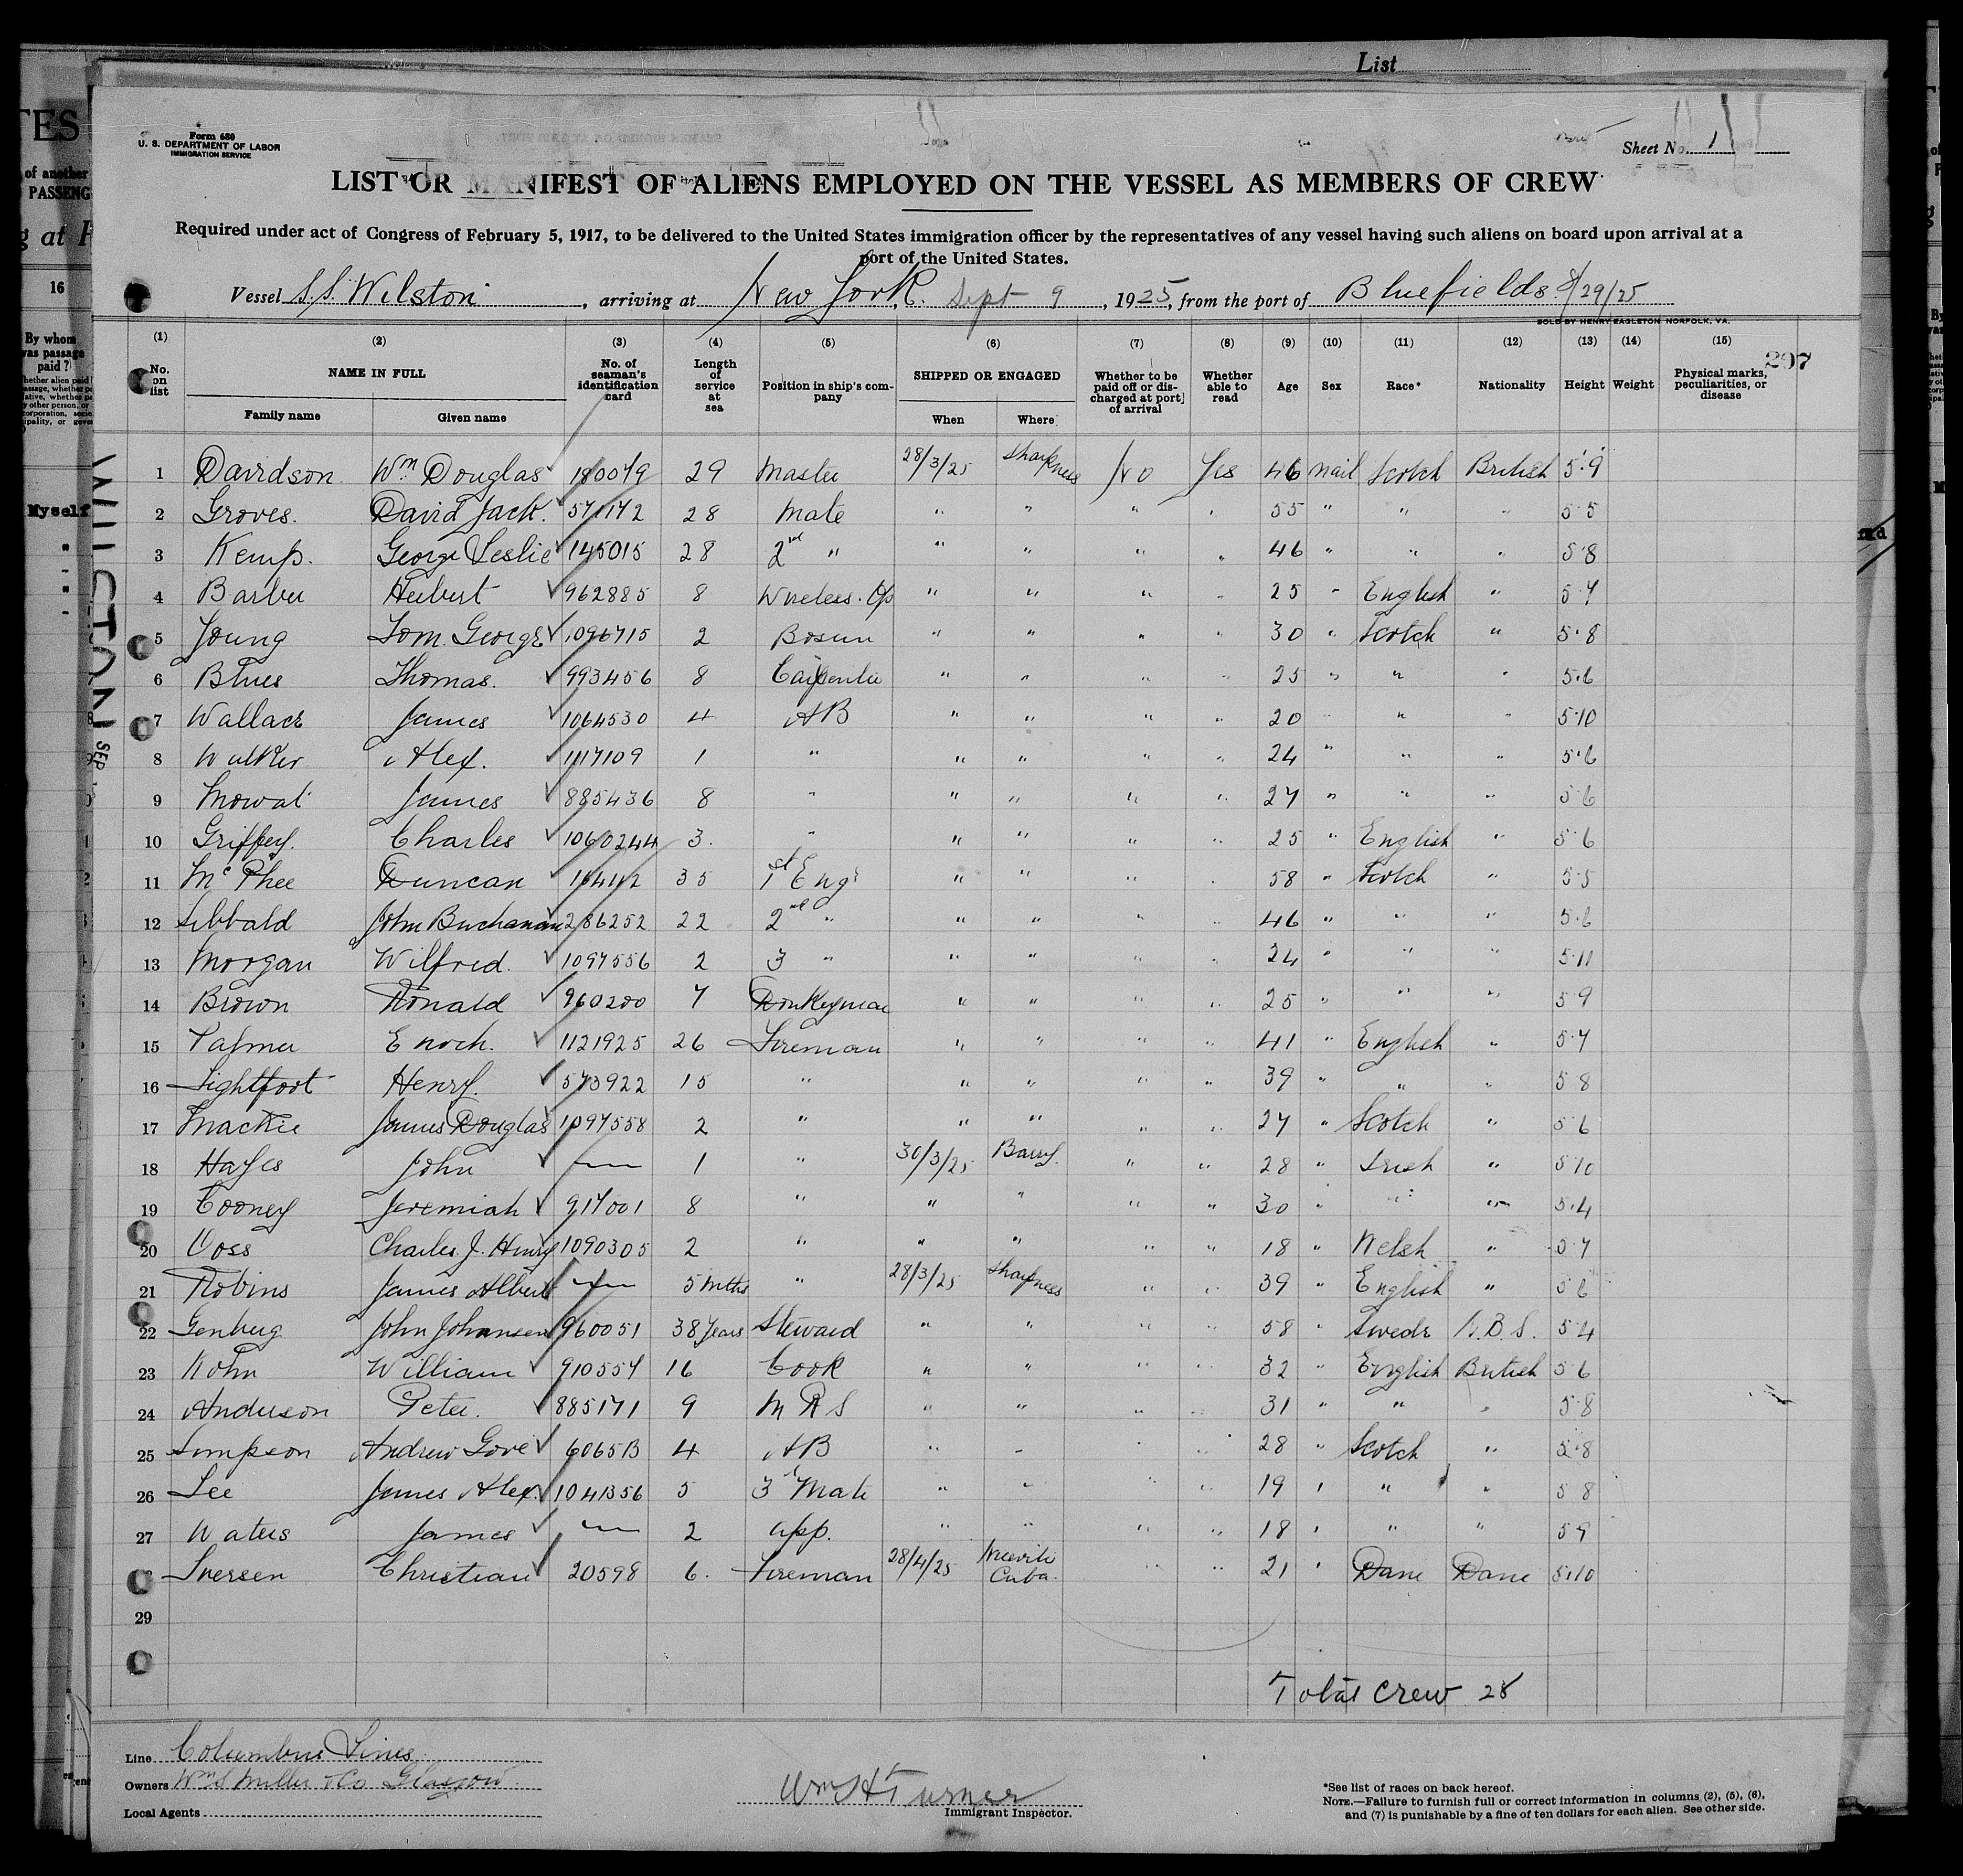 List
Form 680
U. S. DEPARTMENT OF LABOR
IMMIGRATION SERVICE
Sheet No. 1
LIST OR MANIFEST OF ALIENS EMPLOYED ON THE VESSEL AS MEMBERS OF CREW
Required under act of Congress of February 5, 1917, to be delivered to the United States immigration officer by the representatives of any vessel having such aliens on board upon arrival at a
port of the United States.
Vessel S.S. Wilston, arriving at New York. Sept 9, 1925, from the port of Bluefields 8/29/25
SOLD BY HENRY EAGLETON NORFOLK, VA.
(1) (2) (3) (4) (5) (6) (7) (8) (9) (10) (11) (12) (13) (14) (15)
297
No. on list NAME IN FULL Family name Given name No. of seaman's identification card Length of service at sea Position in ship's company SHIPPED OR ENGAGED When Where Whether to be paid off or discharged at port of arrival Whether able to read Age Sex Race* Nationality Height Weight Physical marks, peculiarities, or disease
1 Davidson Wm. Douglas 180079 29 Master 28/3/25 Sharpness No Yes 46 Mail Scotch British 5.9
2 Groves. David Jack. 571172 28 Mate " " " " 55 " " " 5.5
3 Kemp. George Leslie 145015 28 2nd " " " " " 46 " " " 5.8
4 Barber Herbert 962885 8 Wireless. Op " " " " 25 " English " 5.7
5 Young Tom. George 1096715 2 Bosun " " " " 30 " Scotch " 5.8
6 Blues Thomas. 993456 8 Carpenter " " " " 25 " " " 5.6
7 Wallace James 1064530 4 AB " " " " 20 " " " 5.10
8 Walker Alex. 1117109 1 " " " " " 24 " " " 5.6
9 Mowat James 885436 8 " " " " " 27 " " " 5.6
10 Griffey. Charles 1060244 3. " " " " " 25 " English " 5.6
11 McPhee Duncan 16442 35 1st Engr " " " " 58 " Scotch " 5.5
12 Sibbald John Buchanan 286252 22 2nd " " " " " 46 " " " 5.6
13 Morgan Wilfred. 1097556 2 3 " " " " " 24 " " " 5.11
14 Brown Ronald 960200 7 Donkeyman " " " " 25 " " " 5.9
15 Palmer Enoch. 1121925 26 Fireman " " " " 41 " English " 5.7
16 Lightfoot Henry. 573922 15 " " " " " 39 " " " 5 8
17 Mackie James Douglas 1097558 2 " " " " " 27 " Scotch " 5 6
18 Hayes John — 1 " 30/3/25 Barry. " " 28 " Irish " 5.10
19 Cooney Jeremiah 917001 8 " " " " " 30 " " " 5.4
20 Voss Charles J. Henry 1090305 2 " " " " " 18 " Welsh " 5.7
21 Robins James Albert — 5 Mths " 28/3/25 Sharpness " " 39 " English " 5 6
22 Genberg John Johansen 960051 38 Years Steward " " " " 58 " Swede N.B.S. 5.4
23 Kohn William 910557 16 Cook " " " " 32 " English British 5 6
24 Anderson Peter. 885171 9 M R S " " " " 31 " " " 5.8
25 Simpson Andrew Gove 6065B 4 AB " " " " 28 " Scotch " 5.8
26 Lee James Alex. 1041356 5 3rd Mate " " " " 19 " " " 5 8
27 Waters James — 2 App. " " " " 18 " " " 5 9
Iversen Christian 20598 6. Fireman 28/4/25 Cuba. " " 21 " Dane Dane 5.10
29
Total Crew 28
WILSTON SEP
Line Columbus Lines
Owners Wm S Miller & Co Glasgow
Local Agents
Wm H Turner
Immigrant Inspector.
*See list of races on back hereof.
NOTE.—Failure to furnish full or correct information in columns (2), (5), (6),
and (7) is punishable by a fine of ten dollars for each alien. See other side.